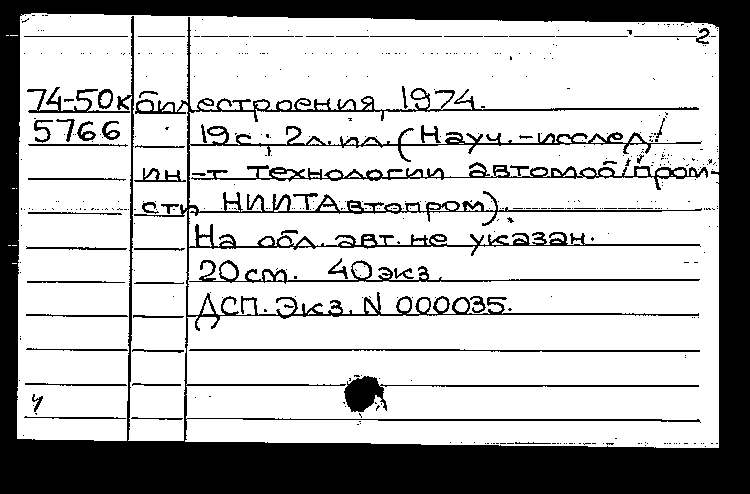 2
74-50к билестроения, 1974.
5766 19с.; 2л.ил. (Науч.-исслед/
ин-т технологии автомоб/пром-
сти НИИТАвтопром).
На обл. авт. не указан.
20см. 40экз.
ДСП. Экз. N 000035.
ч